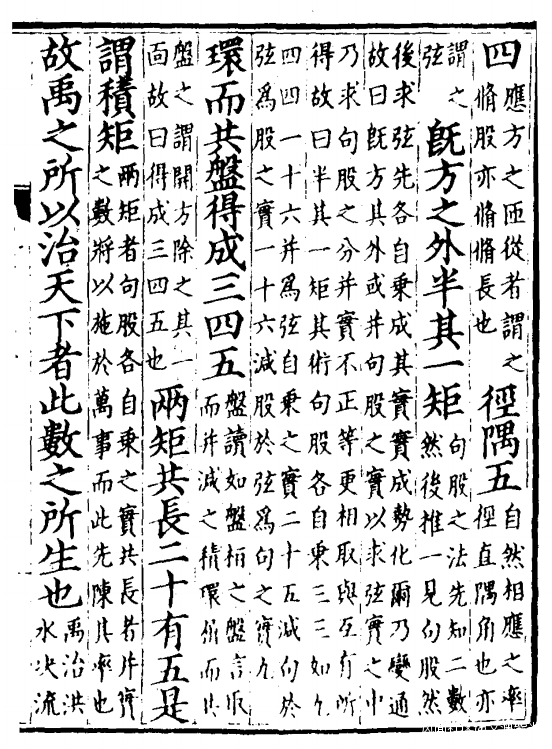 四應方之匝從者謂之
脩股亦脩脩長也
徑隅五自然相應之率
徑直隅角也亦
謂之
弦
旣方之外半其一矩句股之法先知二數
然後推一見句股然
後求弦先各自乗成其實實成勢化爾乃變通
故曰旣方其外或并句股之實以求弦實之中
乃求句股之分并實不正等更相取與互有所
得故曰半其一矩其術句股各自乗三三如九
四四一十六并爲弦自乗之實二十五減句於
弦爲股之實一十六減股於弦爲句之實九
環而共盤得成三四五盤讀如盤桓之盤言取
而并減之積環屈而共
盤之謂開方除之其一
面故曰得成三四五也
兩矩共長二十有五是
謂積矩兩矩者句股各自乗之實共長者并實
之數將以施於萬事而此先陳其率也
故禹之所以治天下者此數之所生也禹治洪
水決流